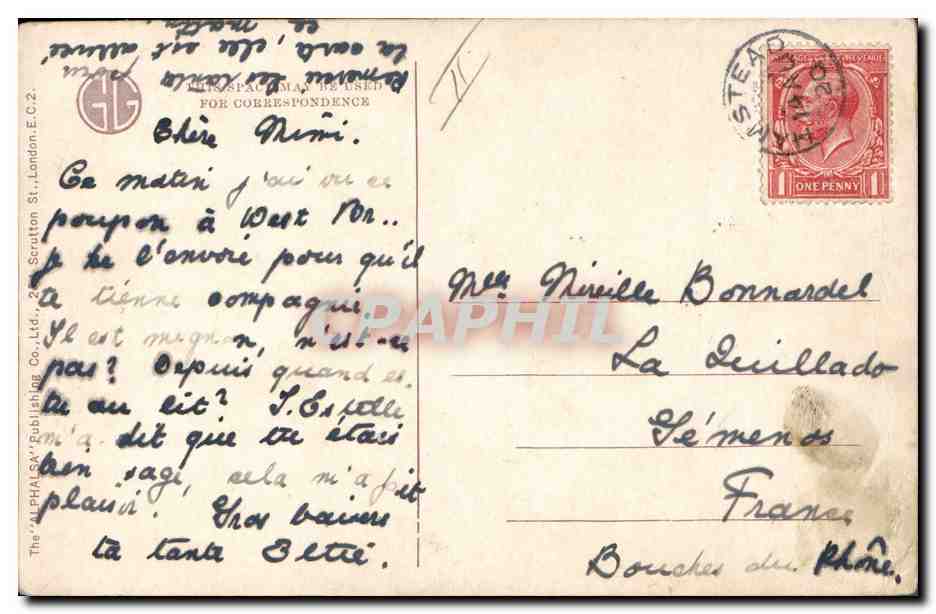 THIS SPACE MAY BE USED
FOR CORRESPONDENCE
Chère Mimi.
Ce matin j'ai vu ce
poupon à West
je te l'envoie pour qu'il
te tienne compagnie.
Il est mignon, n'est-ce
pas? Depuis quand es-
tu au lit? T. Estelle
m'a dit que tu étais
bien sage, cela m'a fait
plaisir. Gros baisers
ta tante
la carte, elle est arrivée
ce matin,
Mlle Mireille Bonnardel
La Quillado
Gémenos
France
Bouches du Rhône.
AMSTEAD
20
ONE PENNY
1 1
The "ALPHALSA" Publishing Co., Ltd., Scrutton St., London. E.C.2.
CPAPHIL